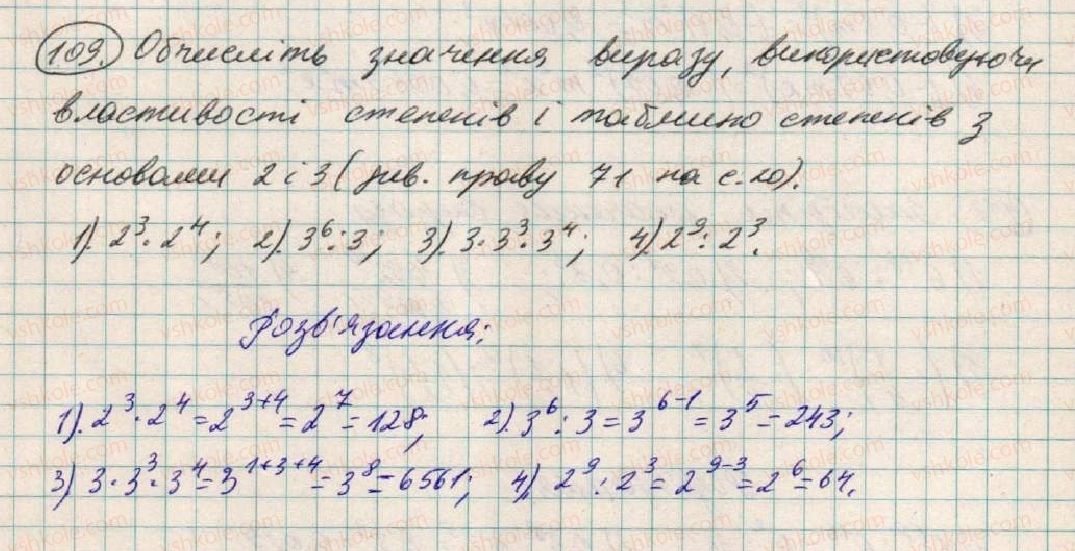 109. Обчисліть значення виразу, використовуючи
властивості степенів і таблицю степенів з
основами 2 і 3 (див. праву 71 на с. 20).
1). 2³ · 2⁴; 2). 3⁶ : 3; 3). 3 · 3³ · 3⁴; 4). 2⁹ : 2³.
Розв'язання:
1). 2³ · 2⁴ = 2³⁺⁴ = 2⁷ = 128; 2). 3⁶ : 3 = 3⁶⁻¹ = 3⁵ = 243;
3) 3 · 3³ · 3⁴ = 3¹⁺³⁺⁴ = 3⁸ = 6561; 4). 2⁹ : 2³ = 2⁹⁻³ = 2⁶ = 64.